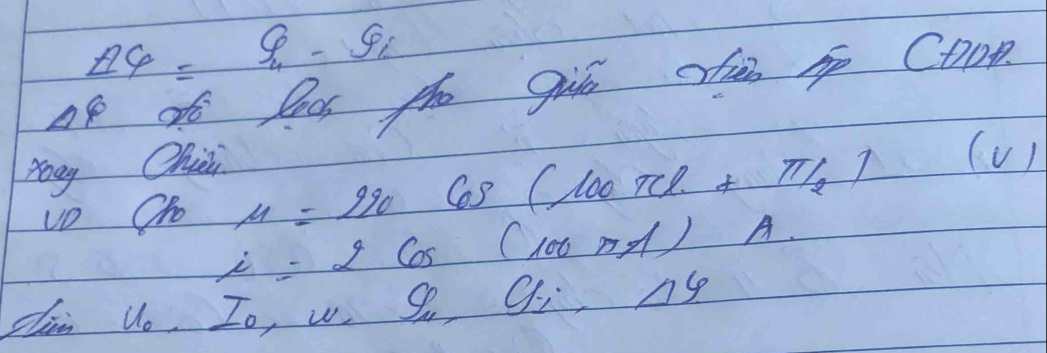 Δφ = φu - φi
Δφ độ lệch pha giữa điện áp CĐDĐ
xoay chiều
VD Cho u = 220 cos (100πt + π/2) (V)
i = 2 cos (100πt) A.
tìm U₀, I₀, w, φu, φi, Δφ